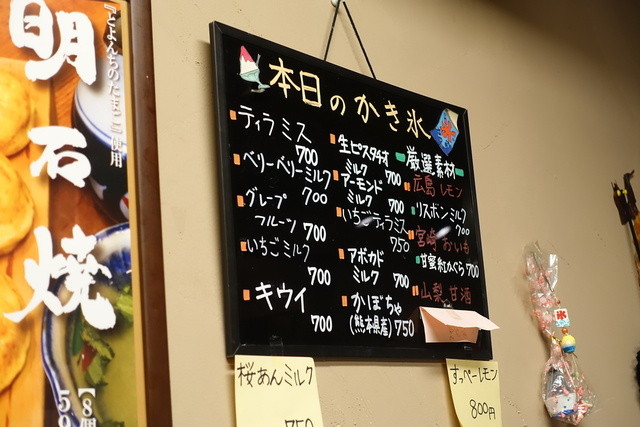 『とよんちのたまご』使用
明石焼
本日のかき氷
ティラミス
700
ベリーベリーミルク
700
グレープ
フルーツ 700
いちごミルク
700
キウイ
700
生ピスタチオ
ミルク 700
アーモンド
ミルク 700
いちごティラミス
750
アボカド
ミルク 700
かぼちゃ
(熊本県産) 750
厳選素材
広島レモン
リスボンミルク
700
宮崎おいも
甘蜜紅かぐら 700
山梨甘酒
桜あんミルク
750
すっぺーレモン
800円
氷